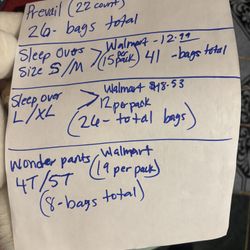 Prevail (22 count)
26- bags total
Sleep Overs > Walmart - 12.99
Size S/M (15 per pack) 41 -bags total
Sleep over > Walmart $18.53
L/XL 12 per pack
(26- total bags)
Wonder pants (Walmart
4T/5T (19 per pack)
(8-bags total)